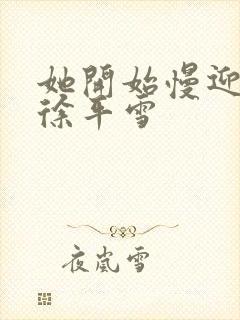 她開始慢迎
徐平雪
夜嵐雪